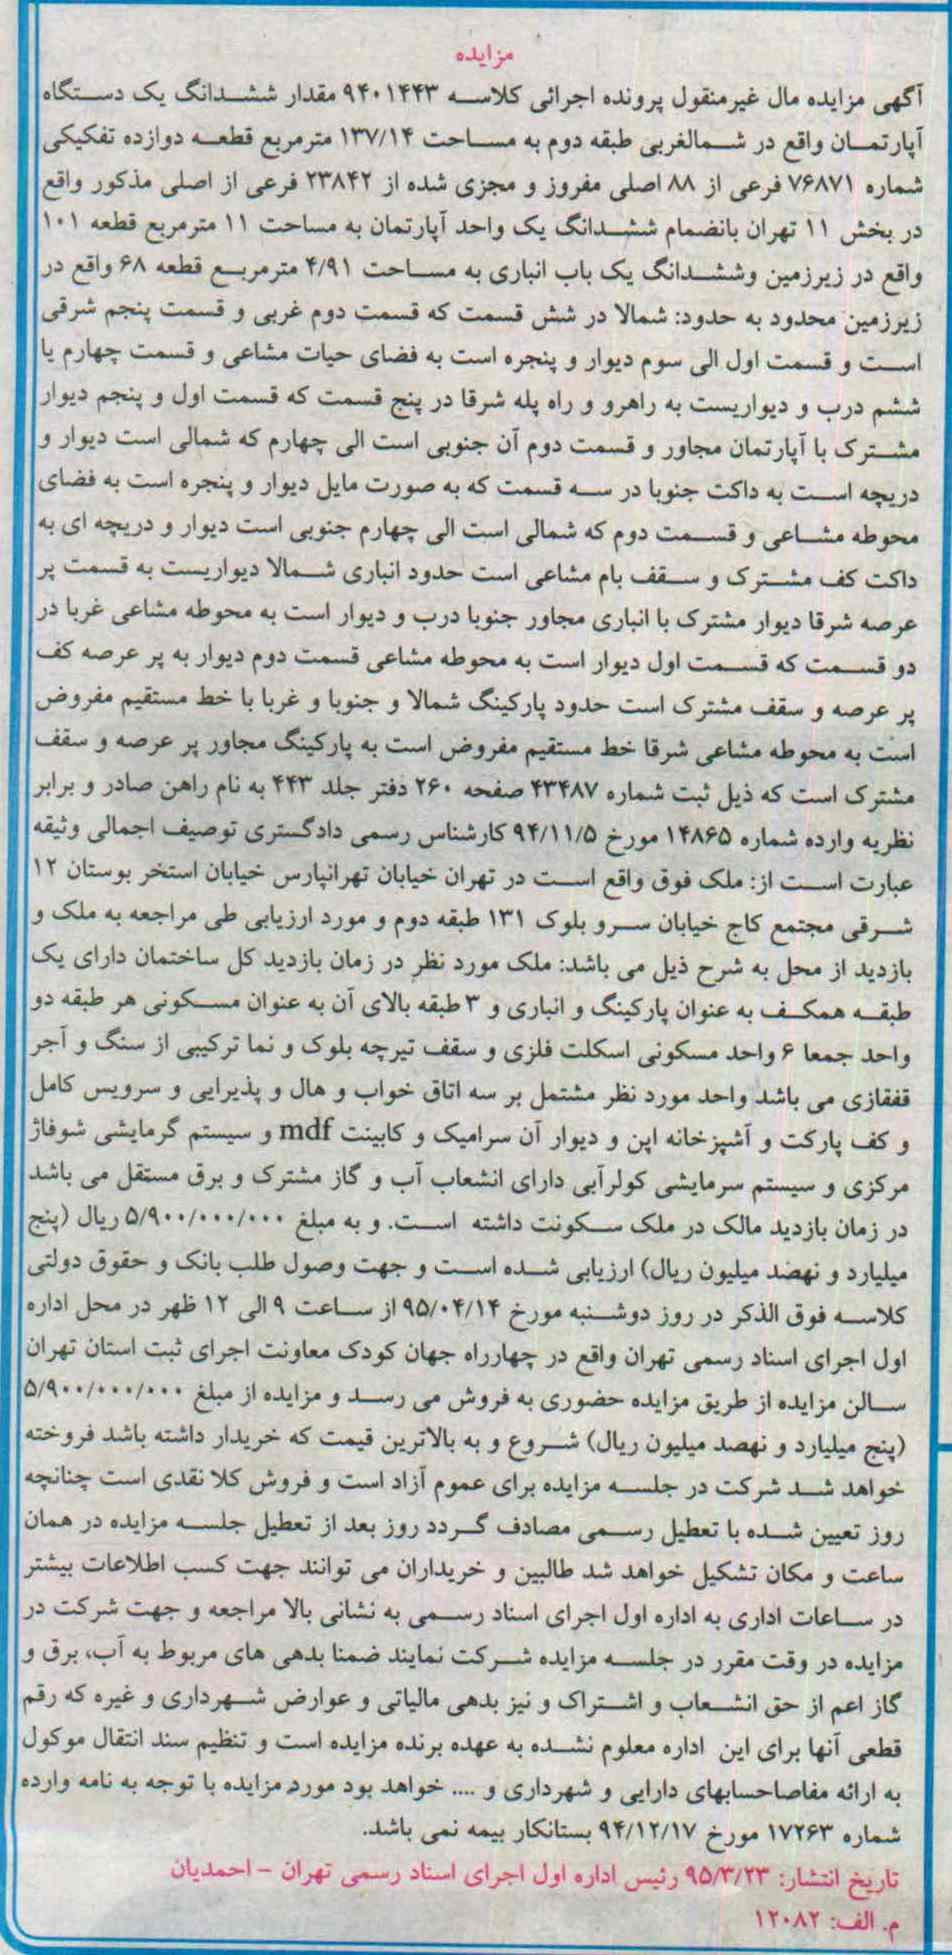 مزایده
آگهی مزایده مال غیرمنقول پرونده اجرائی کلاسه ۹۴۰۱۴۴۳ مقدار ششدانگ یک دستگاه
آپارتمان واقع در شمالغربی طبقه دوم به مساحت ۱۳۷/۱۴ مترمربع قطعه دوازده تفکیکی
شماره ۷۶۸۷۱ فرعی از ۸۸ اصلی مفروز و مجزی شده از ۲۳۸۴۲ فرعی از اصلی مذکور واقع
در بخش ۱۱ تهران بانضمام ششدانگ یک واحد آپارتمان به مساحت ۱۱ مترمربع قطعه ۱۰۱
واقع در زیرزمین وششدانگ یک باب انباری به مساحت ۴/۹۱ مترمربع قطعه ۶۸ واقع در
زیرزمین محدود به حدود: شمالا در شش قسمت که قسمت دوم غربی و قسمت پنجم شرقی
است و قسمت اول الی سوم دیوار و پنجره است به فضای حیات مشاعی و قسمت چهارم یا
ششم درب و دیواریست به راهرو و راه پله شرقا در پنج قسمت که قسمت اول و پنجم دیوار
مشترک با آپارتمان مجاور و قسمت دوم آن جنوبی است الی چهارم که شمالی است دیوار و
دریچه است به داکت جنوبا در سه قسمت که به صورت مایل دیوار و پنجره است به فضای
محوطه مشاعی و قسمت دوم که شمالی است الی چهارم جنوبی است دیوار و دریچه ای به
داکت کف مشترک و سقف بام مشاعی است حدود انباری شمالا دیواریست به قسمت پر
عرصه شرقا دیوار مشترک با انباری مجاور جنوبا درب و دیوار است به محوطه مشاعی غربا در
دو قسمت که قسمت اول دیوار است به محوطه مشاعی قسمت دوم دیوار به پر عرصه کف
پر عرصه و سقف مشترک است حدود پارکینگ شمالا و جنوبا و غربا با خط مستقیم مفروض
است به محوطه مشاعی شرقا خط مستقیم مفروض است به پارکینگ مجاور پر عرصه و سقف
مشترک است که ذیل ثبت شماره ۴۳۴۸۷ صفحه ۲۶۰ دفتر جلد ۴۴۳ به نام راهن صادر و برابر
نظریه وارده شماره ۱۴۸۶۵ مورخ ۹۴/۱۱/۵ کارشناس رسمی دادگستری توصیف اجمالی وثیقه
عبارت است از: ملک فوق واقع است در تهران خیابان تهرانپارس خیابان استخر بوستان ۱۲
شرقی مجتمع کاج خیابان سرو بلوک ۱۳۱ طبقه دوم و مورد ارزیابی طی مراجعه به ملک و
بازدید از محل به شرح ذیل می باشد: ملک مورد نظر در زمان بازدید کل ساختمان دارای یک
طبقه همکف به عنوان پارکینگ و انباری و ۳ طبقه بالای آن به عنوان مسکونی هر طبقه دو
واحد جمعا ۶ واحد مسکونی اسکلت فلزی و سقف تیرچه بلوک و نما ترکیبی از سنگ و آجر
قفقازی می باشد واحد مورد نظر مشتمل بر سه اتاق خواب و هال و پذیرایی و سرویس کامل
و کف پارکت و آشپزخانه اپن و دیوار آن سرامیک و کابینت mdf و سیستم گرمایشی شوفاژ
مرکزی و سیستم سرمایشی کولرآبی دارای انشعاب آب و گاز مشترک و برق مستقل می باشد
در زمان بازدید مالک در ملک سکونت داشته است. و به مبلغ ۵/۹۰۰/۰۰۰/۰۰۰ ریال (پنج
میلیارد و نهصد میلیون ریال) ارزیابی شده است و جهت وصول طلب بانک و حقوق دولتی
کلاسه فوق الذکر در روز دوشنبه مورخ ۹۵/۰۴/۱۴ از ساعت ۹ الی ۱۲ ظهر در محل اداره
اول اجرای اسناد رسمی تهران واقع در چهارراه جهان کودک معاونت اجرای ثبت استان تهران
سالن مزایده از طریق مزایده حضوری به فروش می رسد و مزایده از مبلغ ۵/۹۰۰/۰۰۰/۰۰۰
(پنج میلیارد و نهصد میلیون ریال) شروع و به بالاترین قیمت که خریدار داشته باشد فروخته
خواهد شد شرکت در جلسه مزایده برای عموم آزاد است و فروش کلا نقدی است چنانچه
روز تعیین شده با تعطیل رسمی مصادف گردد روز بعد از تعطیل جلسه مزایده در همان
ساعت و مکان تشکیل خواهد شد طالبین و خریداران می توانند جهت کسب اطلاعات بیشتر
در ساعات اداری به اداره اول اجرای اسناد رسمی به نشانی بالا مراجعه و جهت شرکت در
مزایده در وقت مقرر در جلسه مزایده شرکت نمایند ضمنا بدهی های مربوط به آب، برق و
گاز اعم از حق انشعاب و اشتراک و نیز بدهی مالیاتی و عوارض شهرداری و غیره که رقم
قطعی آنها برای این اداره معلوم نشده به عهده برنده مزایده است و تنظیم سند انتقال موکول
به ارائه مفاصاحسابهای دارایی و شهرداری و .... خواهد بود مورد مزایده با توجه به نامه وارده
شماره ۱۷۲۶۳ مورخ ۹۴/۱۲/۱۷ بستانکار بیمه نمی باشد.
تاریخ انتشار: ۹۵/۳/۲۳ رئیس اداره اول اجرای اسناد رسمی تهران - احمدیان
م. الف: ۱۲۰۸۲